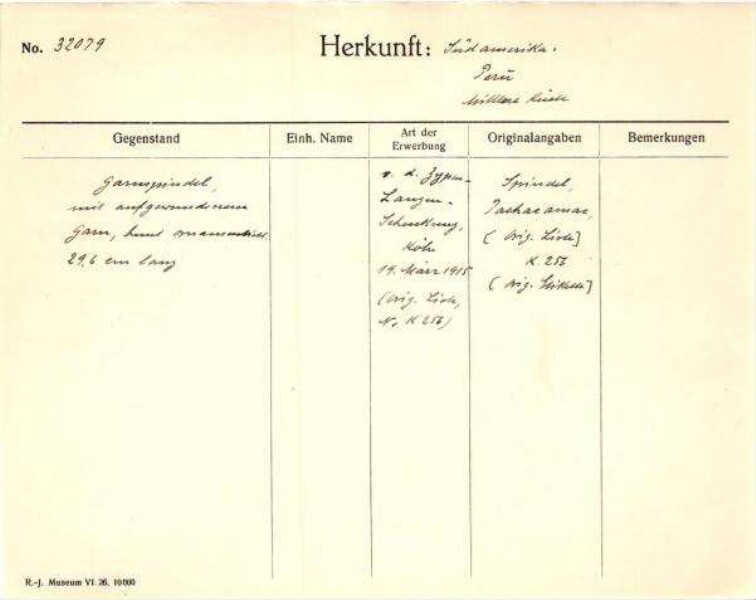 No. 32079
Herkunft: Südamerika.
Peru
Mittlere Küste
Gegenstand
Einh. Name
Art der
Erwerbung
Originalangaben
Bemerkungen
Garnspindel,
mit aufgewundenem
Garn, bunt ornamentiert.
29,6 cm lang
v. d. Zypen-
Langen-
Schenkung,
Köln
19. März 1915
(Orig. Liste,
No K 256)
Spindel,
Pachacamac,
[Orig. Liste]
K. 256
[Orig. Etikette]
R.-J. Museum VI. 26. 10000